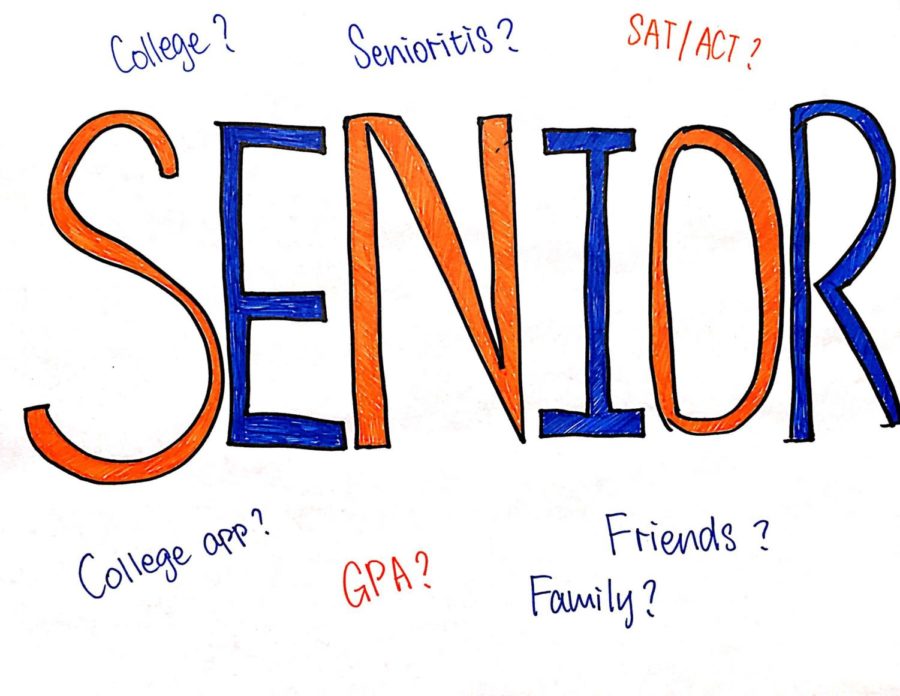 College? Senioritis? SAT/ACT?
SENIOR
College app? GPA? Friends?
Family?